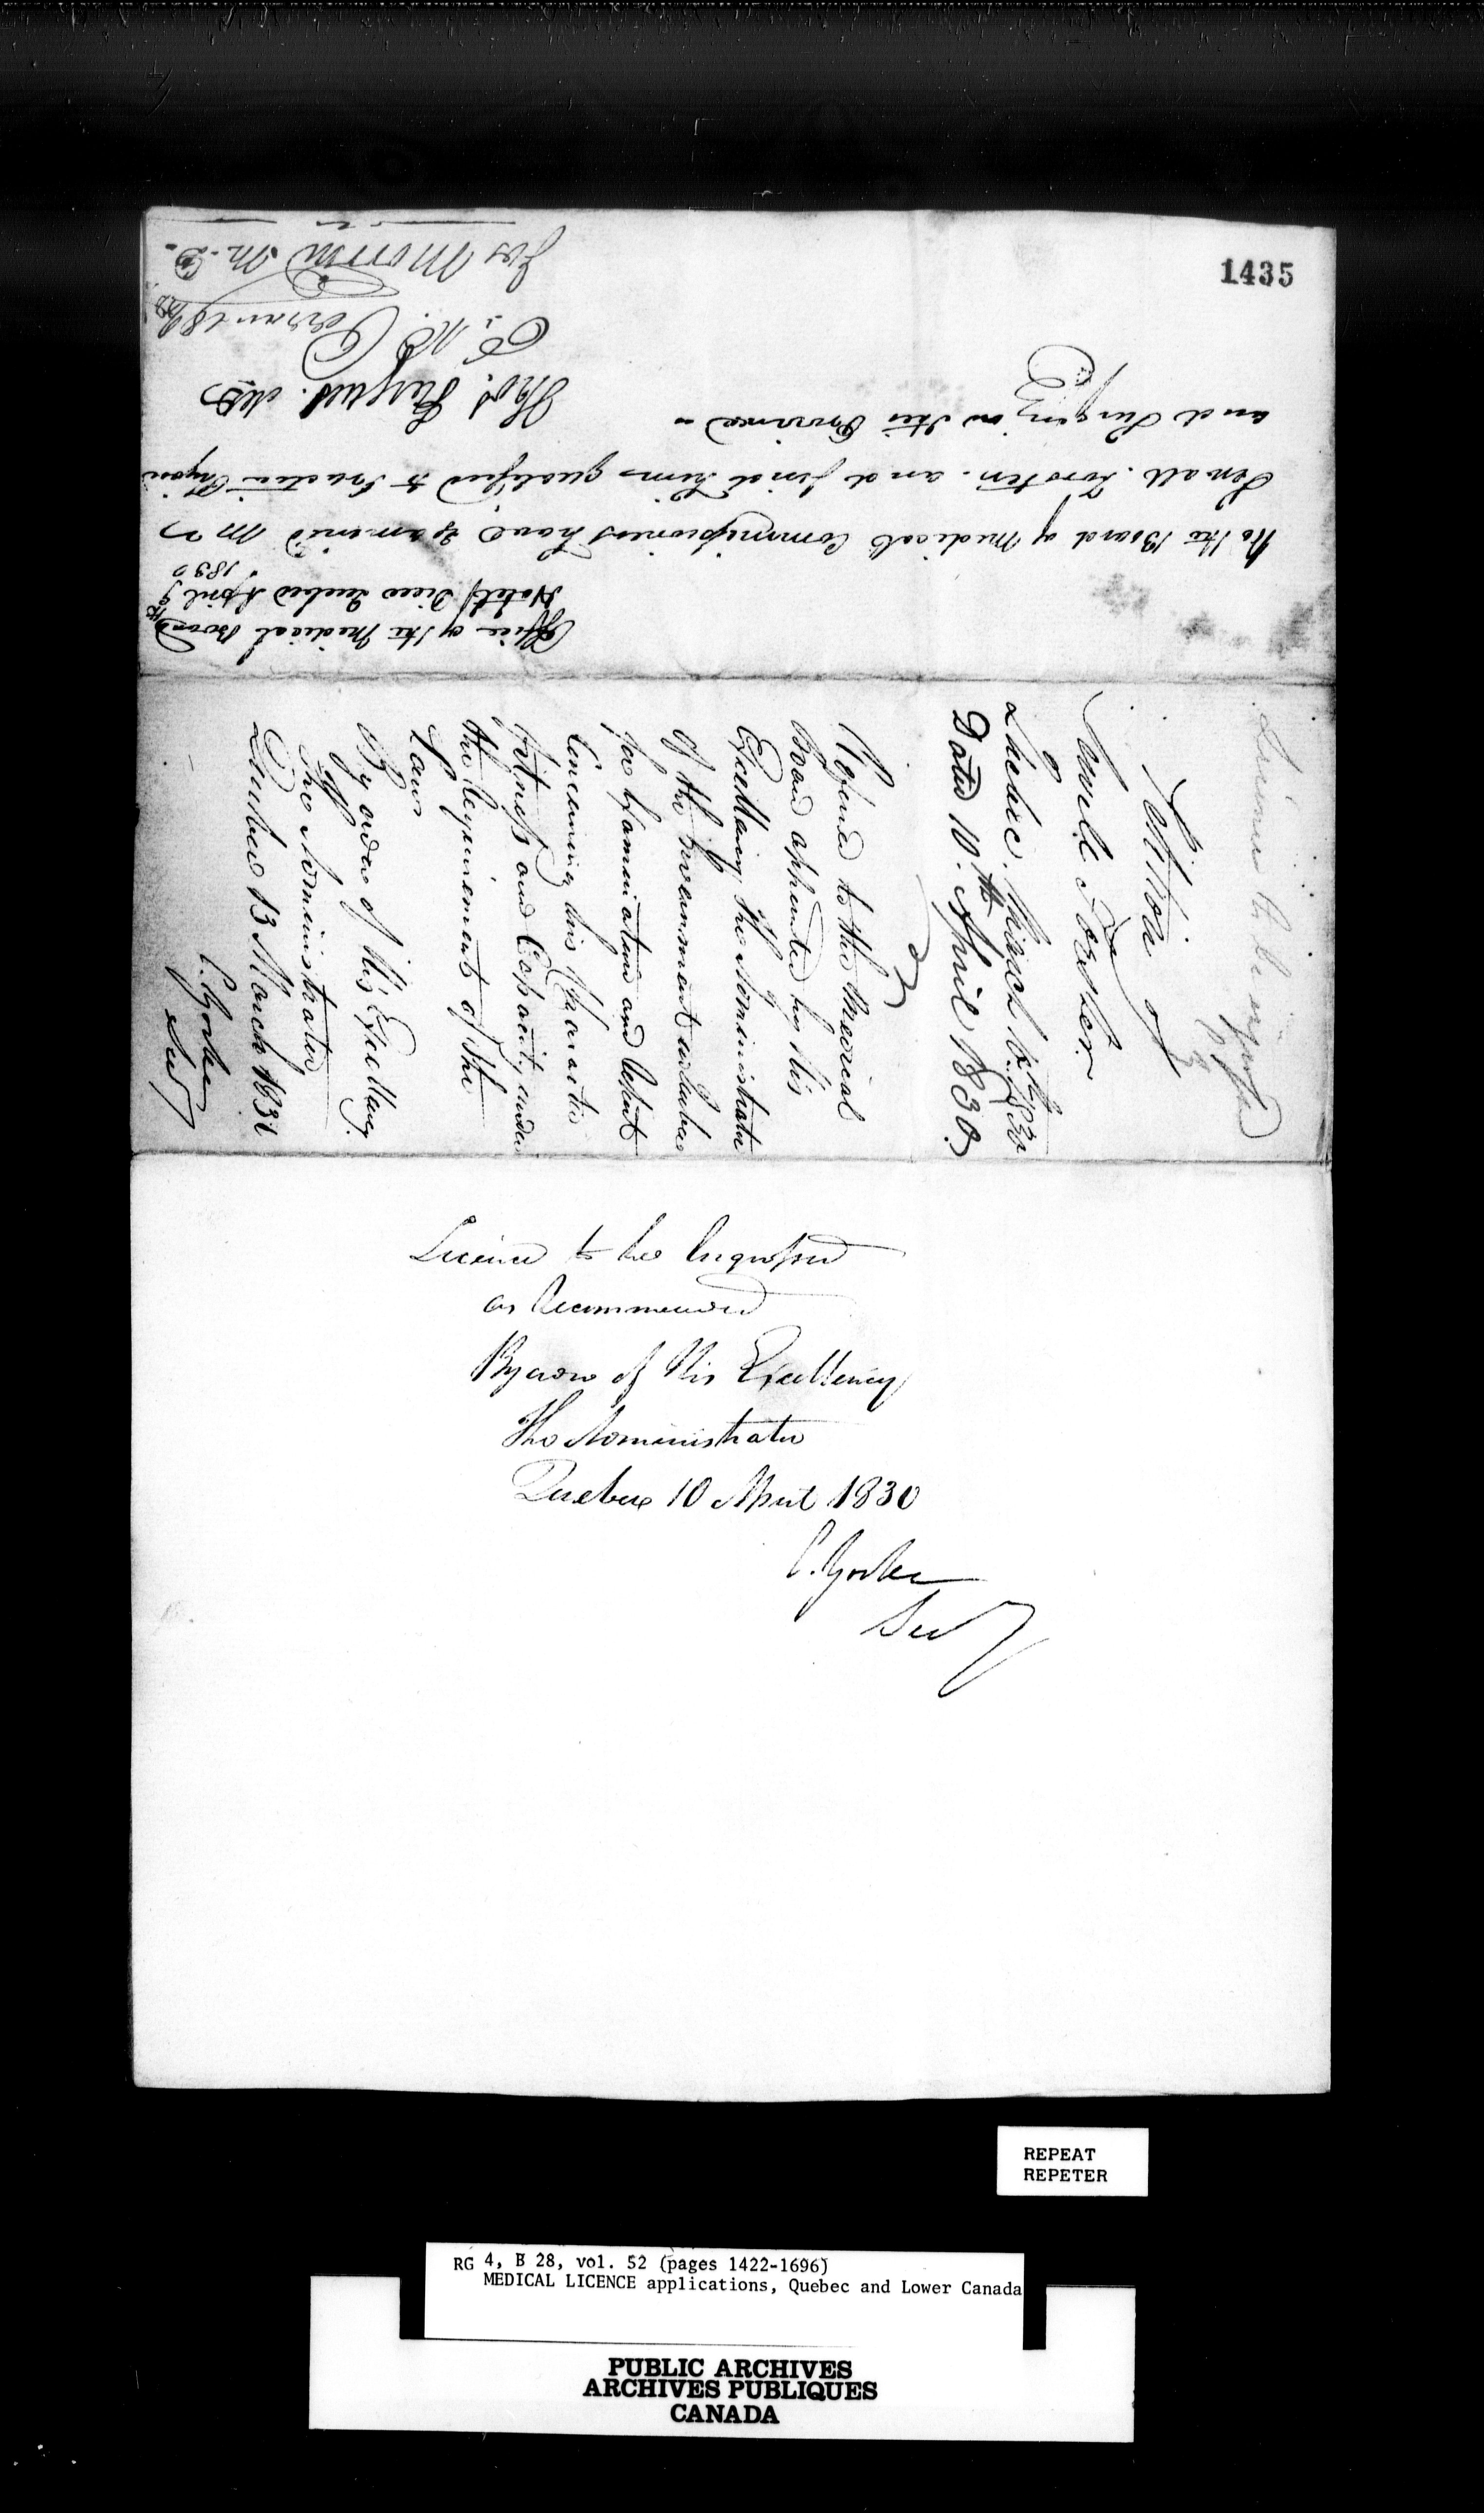 1435
Office of the Medical Board
Hotel Dieu Quebec April 9th
1830
We the Board of Medical Commissioners have Examined Mr
Sewall Foster. and find him qualified to Practice Physic
and Surgery in this Province -
Thos Fargues. MD
Jos Morrin M.D.
Licence to be engrossed
Petition of
Sewell Foster.
Quebec. March 1830
Dated 10th April 1830.
Refered to the Medical
Board appointed by His
Excellency the Administrator
of the Government at Quebec
for Examination and Report
Concerning his Character
fitness and Capacity under
the Requirements of the
Law
By order of His Excellency
The Administrator
Quebec 13 March 1830
C. Yorke
Secy
Licence to be Engrossed
as Recommended
By order of His Excellency
The Administrator
Quebec 10 April 1830
C. Yorke
Secy
REPEAT
REPETER
RG 4, B 28, vol. 52 (pages 1422-1696)
MEDICAL LICENCE applications, Quebec and Lower Canada
PUBLIC ARCHIVES
ARCHIVES PUBLIQUES
CANADA